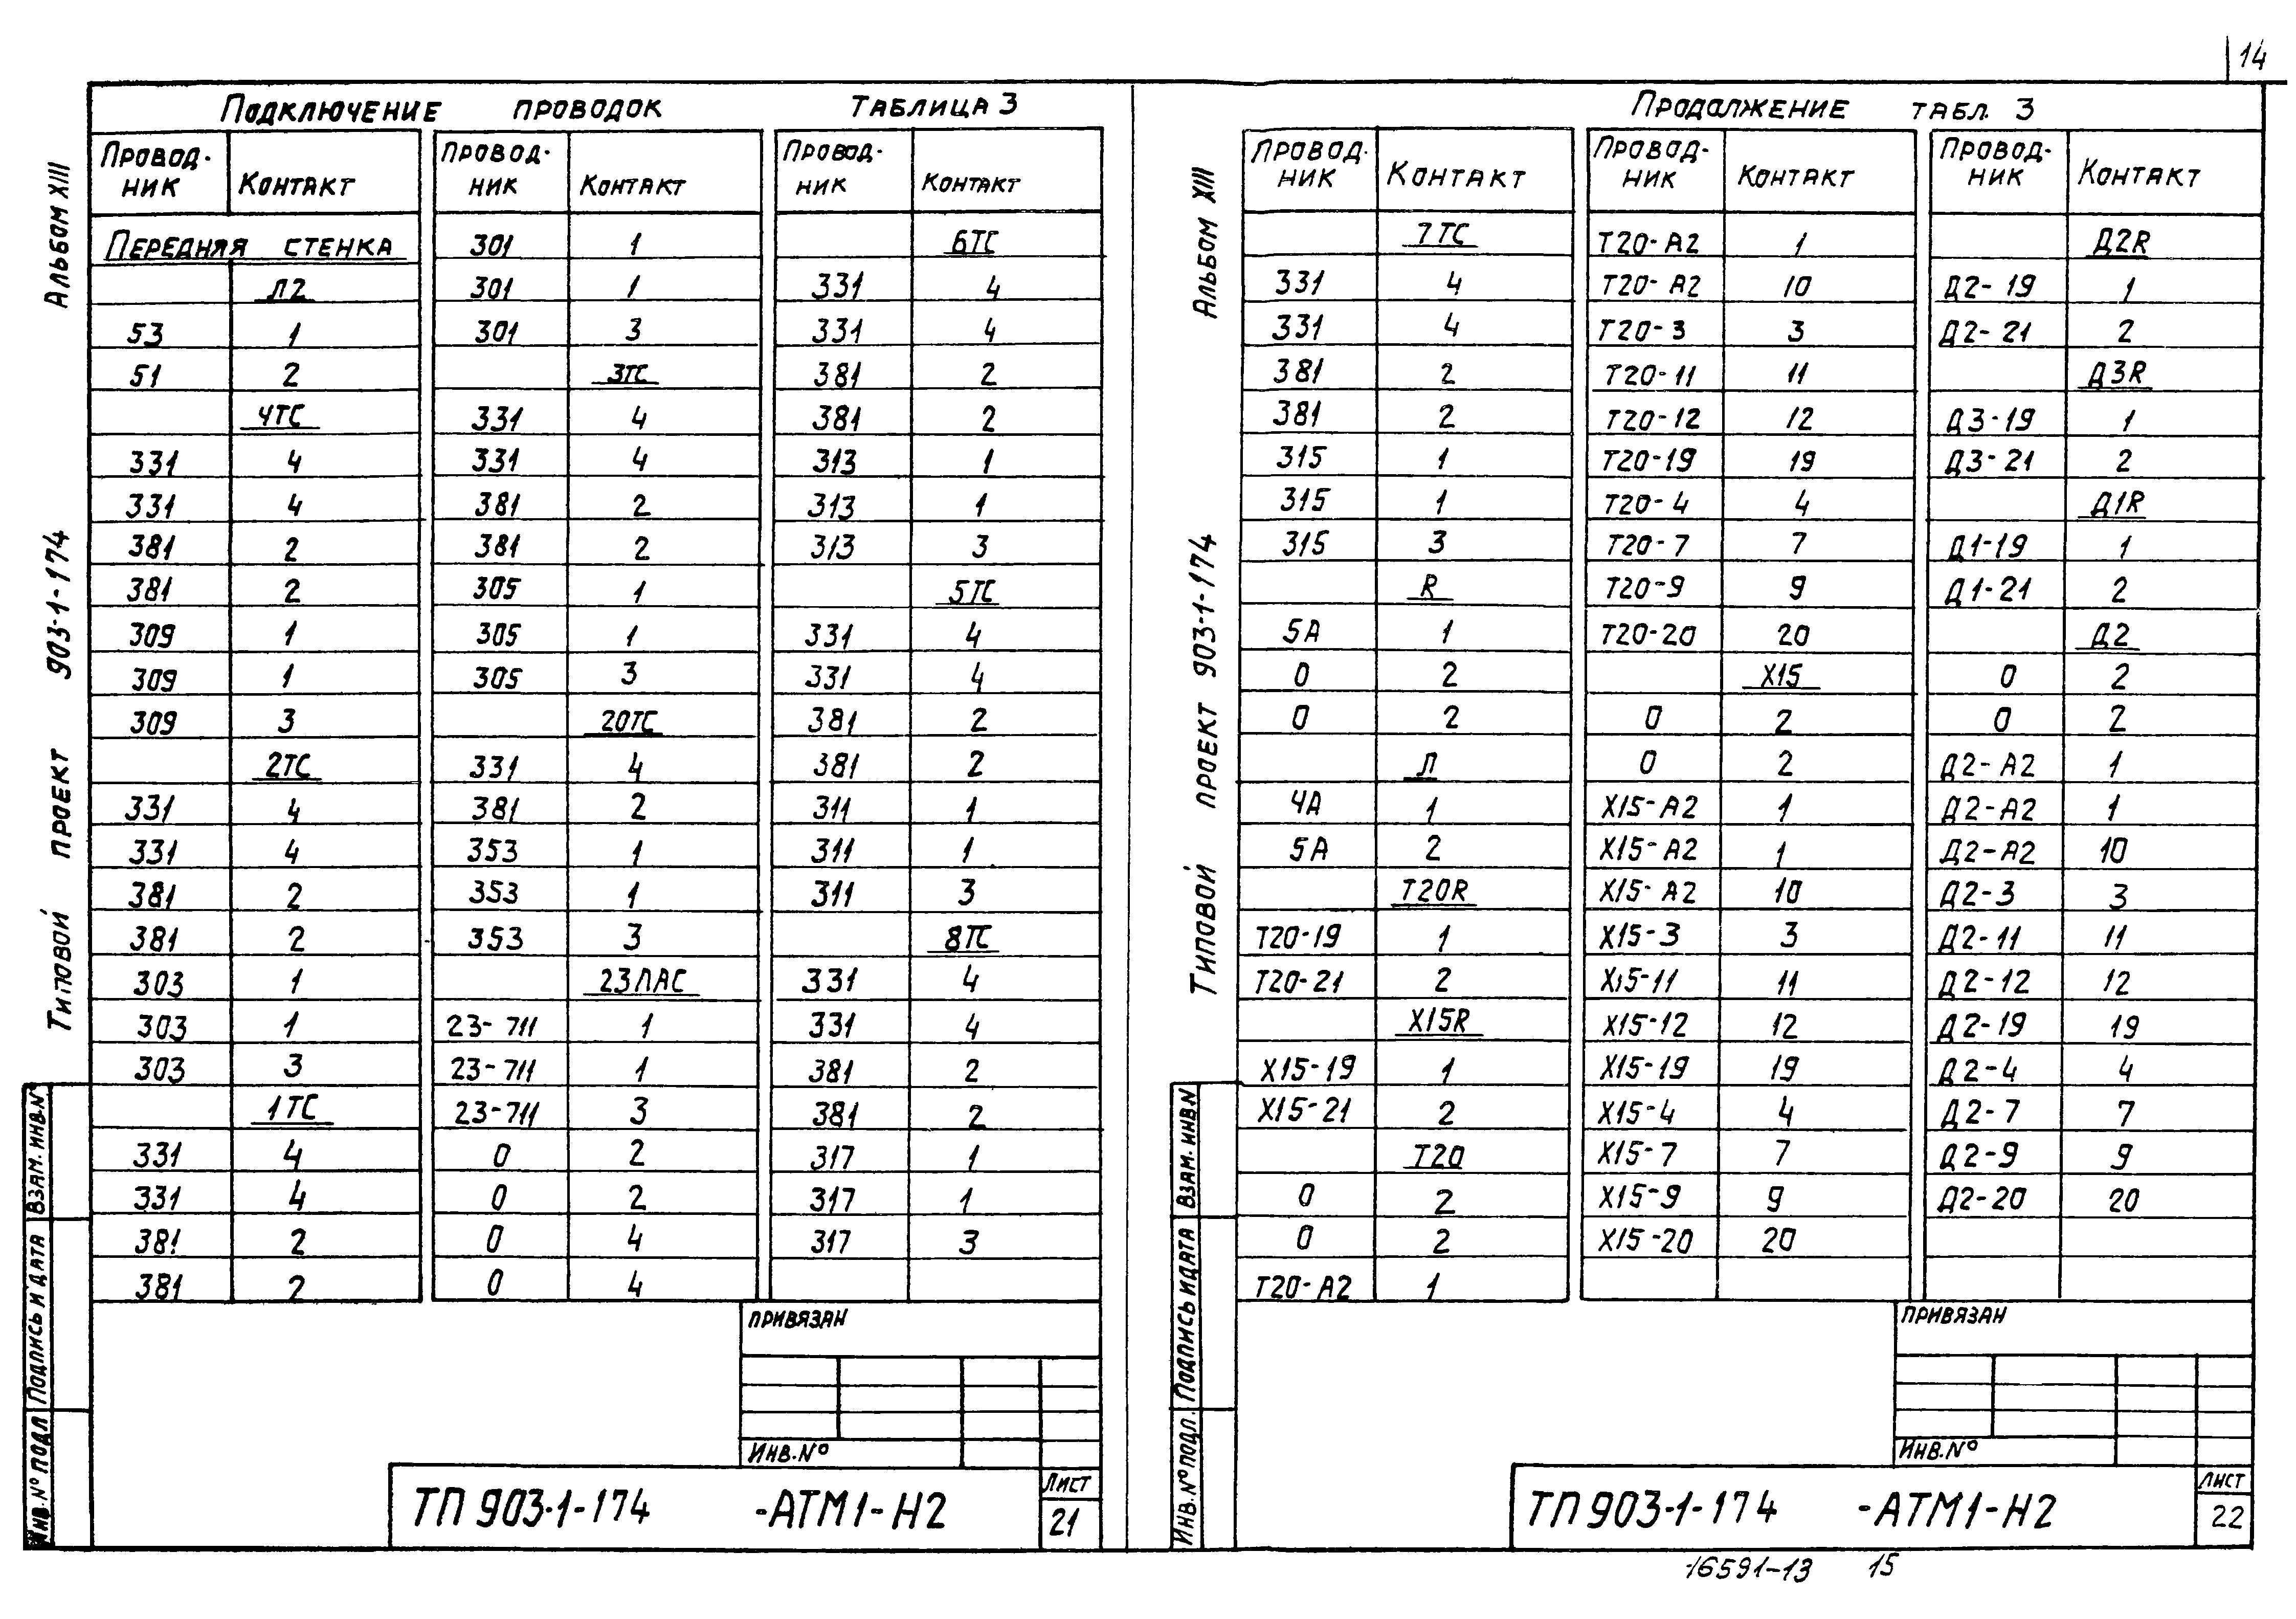 14
Подключение проводок Таблица 3
Провод-ник Контакт Провод-ник Контакт Провод-ник Контакт
Передняя стенка 301 1 6ТС
Л2 301 1 331 4
53 1 301 3 331 4
51 2 3ТС 381 2
4ТС 331 4 381 2
331 4 331 4 313 1
331 4 381 2 313 1
381 2 381 2 313 3
381 2 305 1 5ТС
309 1 305 1 331 4
309 1 305 3 331 4
309 3 20ТС 381 2
2ТС 331 4 381 2
331 4 381 2 311 1
331 4 353 1 311 1
381 2 353 1 311 3
381 2 353 3 8ТС
303 1 23ЛАС 331 4
303 1 23-711 1 331 4
303 3 23-711 1 381 2
1ТС 23-711 3 381 2
331 4 0 2 317 1
331 4 0 2 317 1
381 2 0 4 317 3
381 2 0 4
Привязан
Инв.№
ТП 903-1-174 -АТМ1-Н2
Лист
21
Типовой проект 903-1-174 Альбом XIII
Инв.№ подл Подпись и дата Взам. инв.№
Продолжение табл. 3
Провод-ник Контакт Провод-ник Контакт Провод-ник Контакт
7ТС Т20-А2 1 Д2R
331 4 Т20-А2 10 Д2-19 1
331 4 Т20-3 3 Д2-21 2
381 2 Т20-11 11 Д3R
381 2 Т20-12 12 Д3-19 1
315 1 Т20-19 19 Д3-21 2
315 1 Т20-4 4 Д1R
315 3 Т20-7 7 Д1-19 1
R Т20-9 9 Д1-21 2
5А 1 Т20-20 20 Д2
0 2 Х15 0 2
0 2 0 2 0 2
Л 0 2 Д2-А2 1
4А 1 Х15-А2 1 Д2-А2 1
5А 2 Х15-А2 1 Д2-А2 10
Т20R Х15-А2 10 Д2-3 3
Т20-19 1 Х15-3 3 Д2-11 11
Т20-21 2 Х15-11 11 Д2-12 12
Х15R Х15-12 12 Д2-19 19
Х15-19 1 Х15-19 19 Д2-4 4
Х15-21 2 Х15-4 4 Д2-7 7
Т20 Х15-7 7 Д2-9 9
0 2 Х15-9 9 Д2-20 20
0 2 Х15-20 20
Т20-А2 1
Привязан
Инв.№
ТП 903-1-174 -АТМ1-Н2
Лист
22
Типовой проект 903-1-174 Альбом XIII
Инв.№ подл. Подпись и дата Взам. инв №
16591-13 15